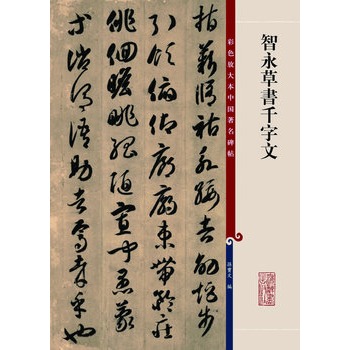 智永草書千字文
彩色放大本中国著名碑帖
孫寶文 編
指薪修祜永綏吉劭矩步
引領俯仰廊廟束帶矜莊
徘徊瞻眺孤陋寡聞愚蒙
等誚謂語助者焉哉乎也